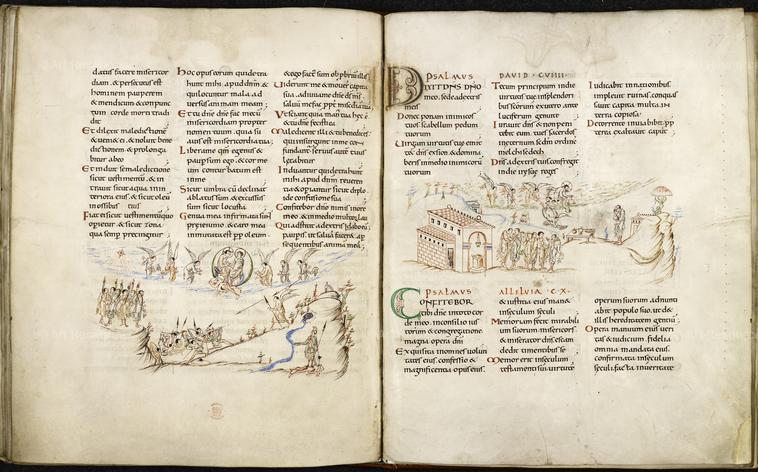 datus facere misericor
diam. & persecutus est
hominem pauperem
& mendicum & conpunc
tum corde morti tradi
dit
Et dilexit maledictione
& ueniet ei. & noluit bene
dictionem & prolonga
bitur abeo
Et induit maledictionem
sicut uestimentum. & in
trauit sicut aqua in in
teriora eius. & sicut oleu
in ossibus eius
Fiat ei sicut uestimentu quo
operitur. & sicut zona
qua semp precingitur
hoc opus eorum qui detra
hunt mihi apud dnm. &
qui locuntur mala ad
uersus animam meam
Et tu dne dne fac mecu
misericordiam propter
nomen tuum. quia su
auis est misericordia tua
Libera me qm egenus &
pauper sum ego. & cor me
um conturbatum est
in me
Sicut umbra cu declinat
ablatus sum. & excussus
sum sicut locusta
Genua mea infirmata sunt
& caro mea
inmutata est
& ego factus sum obprobriu illis
uiderunt me & mouer capita
sua. adiuua me dne ds ms
saluu me fac
Ut sciant quia manus tua hec &
tu dne fecisti ea
Maledicent illi & tu benedices
qui insurgunt in me con
fundant seruus aute tuus
letabitur
Induantur qui detrahunt
mihi
operiantur sicut diplo
ide confusione sua
Confitebor dno nimis in ore
meo. & in medio multoru
Qui adstitit a dextris
pauperis. ut salua faceret a p
sequentibus anima mea
PSALMUS DAVID CVIIII
DIXIT DNS DNO
meo. sede a dextris
meis
Donec ponam inimicos
tuos scabellum pedum
tuorum
Uirgam uirtutis tuę emit
tet dns ex sion & domina
beris in medio inimicoru
tuorum
Tecum principium in die
uirtutis tuę in splendori
bus scorum ex utero ante
luciferum genui te
Iurauit dns & non peni
tebit eum. tu es sacerdos
in eternum sedm ordine
melchisedech
Dns a dextris tuis confregit
in die irę suę reges
Iudicabit in nationibus
impleuit ruinas. conquas
sauit capita multa in
terra copiosa
De torrente in uia bibit. pp
terea exaltauit caput
PSALMUS ALLELUIA CX
CONFITEBOR
tibi dne in toto cor
de meo. in consilio ius
torum & congregatione
magna opera dni
Exquisita in omnes uolun
tates eius. confessio &
magnificentia opus eius
& iustitia eius man&
in seculum seculi
Memoriam fecit mirabili
um suorum misericors
& miserator dns. escam
dedit timentibus se
Memor erit in seculum
testamenti sui uirtute
operum suorum adnunti
abit populo suo. ut det
illis hereditatem gentiu
Opera manuum eius ueri
tas & iudicium fidelia
omnia mandata eius.
confirmata in seculum
seculi. facta in ueritate